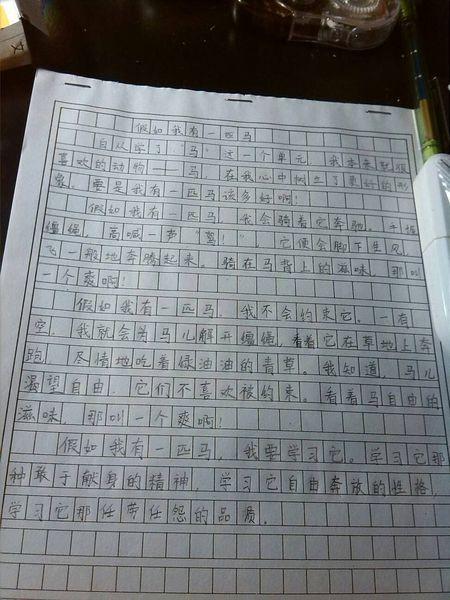 文
假如我有一匹马
自从学了"马"这一个单元,我本来就很
喜欢的动物——马,在我心中树立了更好的形
象。要是我有一匹马该多好啊!
假如我有一匹马,我会骑着它奔驰。手握
缰绳,高喊一声"驾!",它便会脚下生风,
飞一般地奔腾起来。骑在马背上的滋味,那叫
一个爽啊!
假如我有一匹马,我不会约束它。一有
空,我就会为马儿解开缰绳,看着它在草地上奔
跑,尽情地吃着绿油油的青草。我知道,马儿
渴望自由,它们不喜欢被约束。看着马自由的
滋味,那叫一个爽啊!
假如我有一匹马,我要学习它。学习它那
种敢于献身的精神,学习它自由奔放的性格,
学习它那任劳任怨的品质。